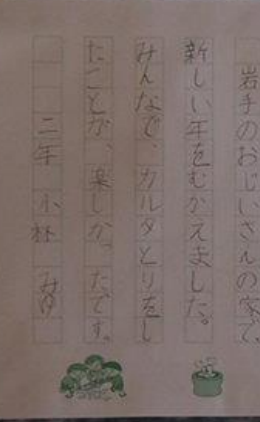 岩手のおじいさんの家で、
新しい年をむかえました。
みんなで、カルタとりをし
たことが、楽しかったです。
二年 小林 みゆ